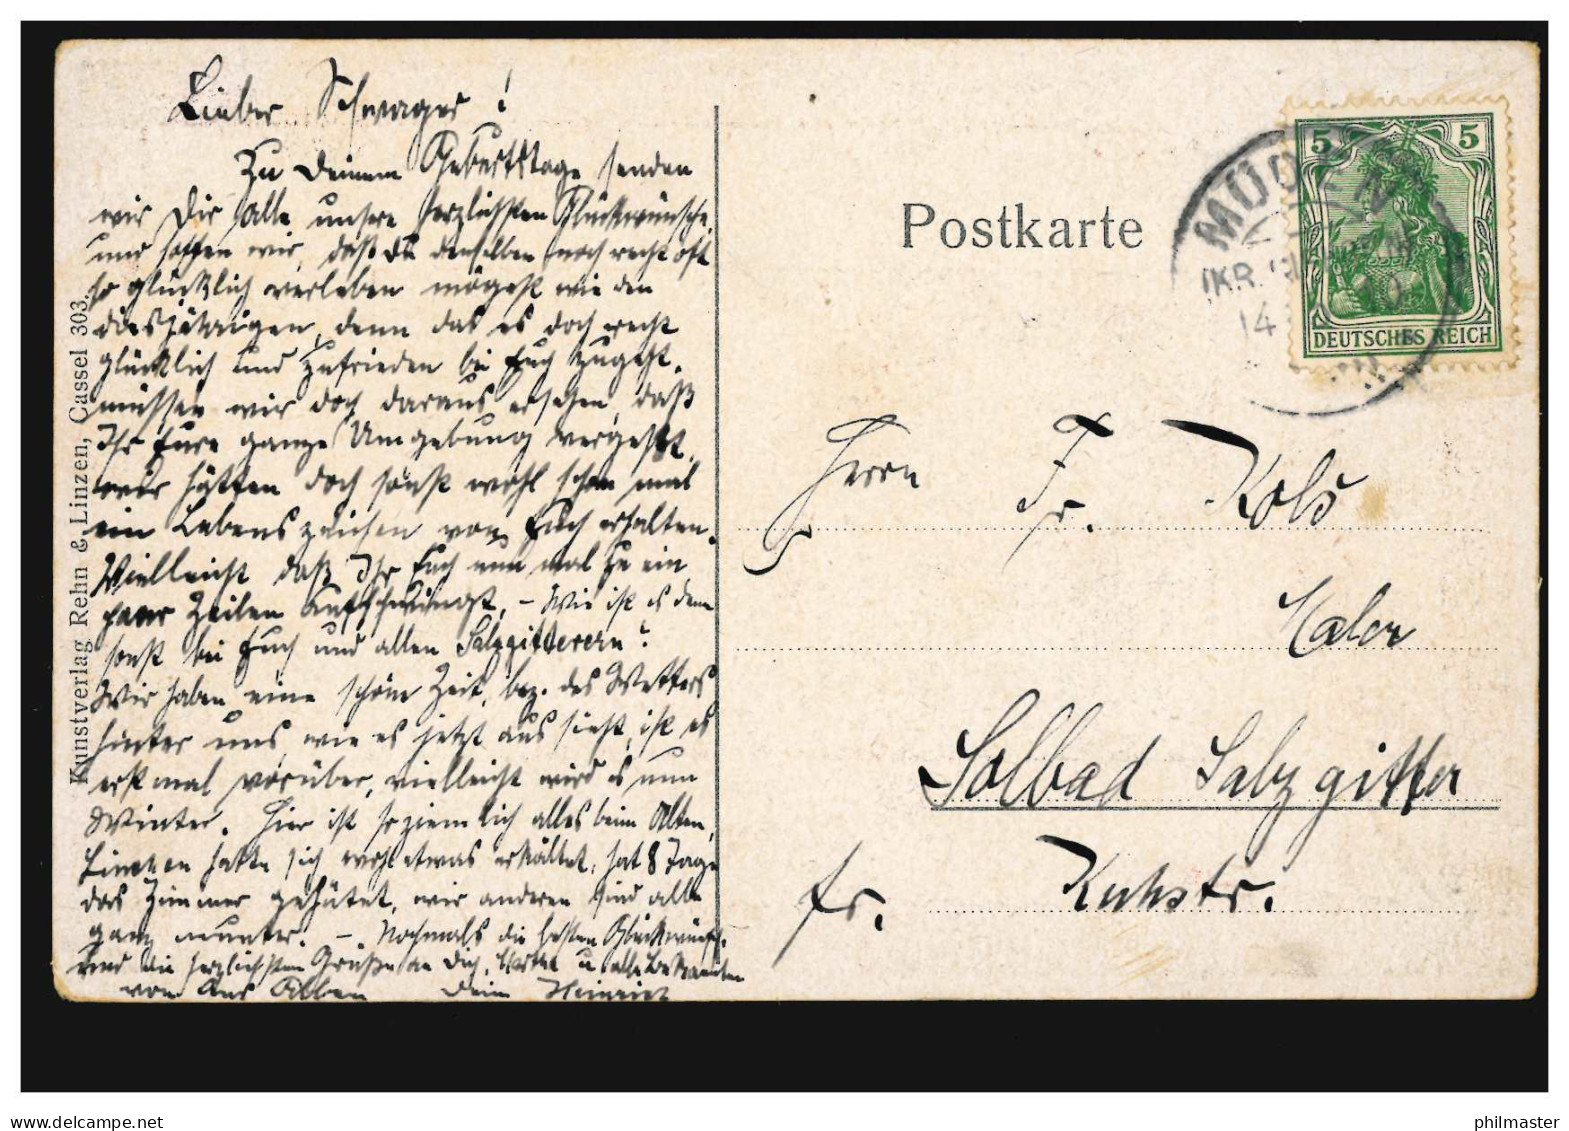 Lieber Schwager!
Zu Deinem Geburtstage senden
wir Dir alle unsere herzlichsten Glückwünsche,
und hoffen wir, daß Du denselben noch recht oft
so glücklich verleben mögest wie den
diesjährigen, denn das es doch recht
glücklich und zufrieden bei Euch zugeht,
müssen wir doch daraus ersehen, daß
Ihr Eure ganze Umgebung vergeßt,
wir hätten doch sonst wohl schon mal
ein Lebenszeichen von Euch erhalten.
Vielleicht daß Ihr Euch nun mal zu ein
paar Zeilen aufschwingt, – Wie ist es denn
sonst bei Euch und allen Salzgitterern?
Wir haben eine schöne Zeit, bez. des Wetters
hinter uns, wie es jetzt aussieht, ist es
erst mal vorüber, vielleicht wird es nun
Winter. Hier ist so ziemlich alles beim Alten,
Linchen hatte sich wohl etwas erkältet, hat 8 Tage
das Zimmer gehütet, wir anderen sind alle
ganz munter. – Nochmals die besten Glückwünsche
und die herzlichsten Grüße an Dich, u alle Bekannten
von uns Allen Dein Heinrich
Kunstverlag Rehn & Linzen, Cassel 303.
Postkarte
5 5
DEUTSCHES REICH
14
Herrn Fr. Kols
Maler
Solbad Salzgitter
fr. Kuhstr.
www.delcampe.net
philmaster